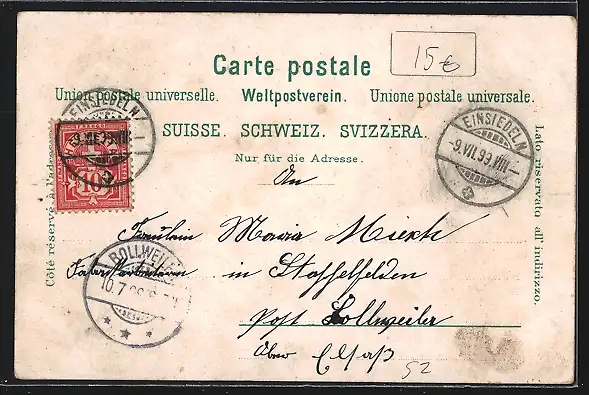 15€
Carte postale
Union postale universelle. Weltpostverein. Unione postale universale.
SUISSE. SCHWEIZ. SVIZZERA.
Nur für die Adresse.
Côté réservé à l'adresse.
Lato riservato all' indirizzo.
EINSIEDELN
FRANCO
10
EINSIEDELN
9.VII.99.VIII.—
BOLLWEILER
10.7.99
An
Fräulein Maria
Fabrikarbeiterin in Staffelfelden
Post Bollweiler
Ober Elsaß
52